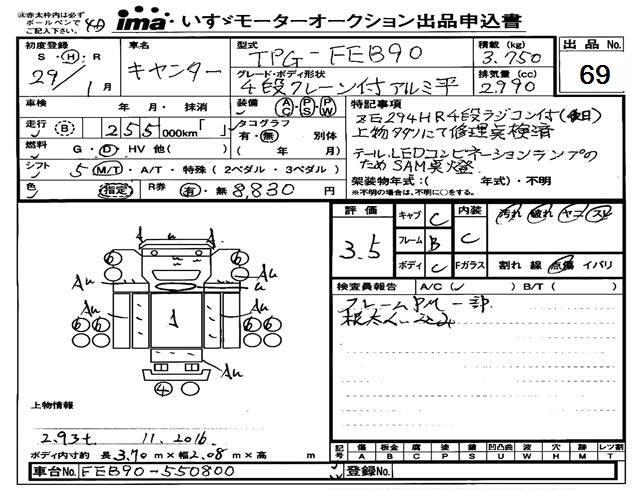 ※赤太枠内は必ず
ボールペンで
ご記入下さい。
ima・いすゞモーターオークション出品申込書
初度登録 車名 型式 積載(kg) 出品No.
S・H・R キャンター TPG-FEB90 3.750 69
29/1月
グレード・ボディ形状 排気量(cc)
4段クレーン付アルミ平 2,990
車検 年 月・抹消 装備 AC・PS・PW 特記事項
ZE294HR4段ラジコン付(
走行 B 255000km「 」 タコグラフ 有・無 別体 上物タダノにて修理実検済
燃料 G・D・HV 他( ) ( 年 月) テール、LEDコンビネーションランプの
シフト 5 M/T・A/T・特殊(2ペダル・3ペダル) ためSAM点燈
色 指定 R券 有・無 8,830円 架装物年式:( 年式)・不明
※不明の場合は、不明に○をする。
評価 キャブ C 内装 汚れ 破れ ヤニ スレ
3.5 フレーム B C
ボディ C Fガラス 割れ 線 点傷 イバリ
A u
6 6
Au Au
u
Au A Au
6 6 6 6
Au
4 Au
検査員報告 A/C( ) B/T( )
フレーム 一部
上物情報
2.93t 11.2016
ボディ内寸約 長3.70m×幅2.08m×高 m
記号 傷 板金 腐 塗 錆 凹凸曲 波 穴 跡 レツ割
A B C P S U W H M T
車台No. FEB90-550800 登録No.